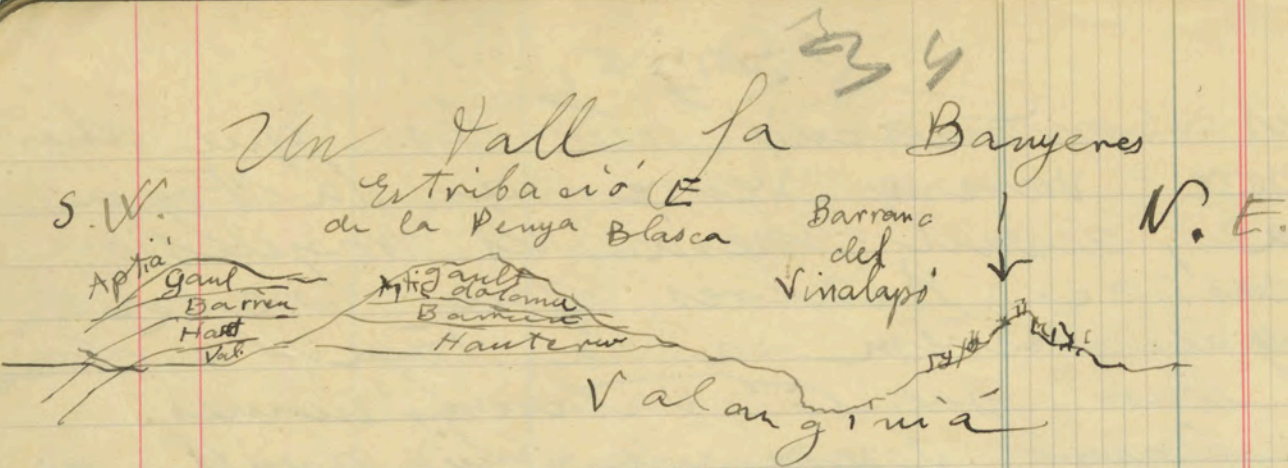 Un tall fa Banyeres
Estribació E
de la Penya Blasca
S.W.
Barranc
del
Vinalapó
N. E.
Aptià
Gaul
Barrem
Haut
Val.
Apti gault
dolomi
Barrem
Hauteriv
Valanginià